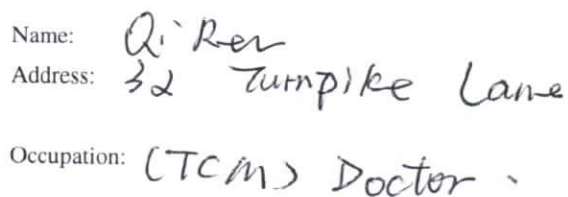 Name: Qi Ren
Address: 32 Turnpike Lane
Occupation: (TCM) Doctor.